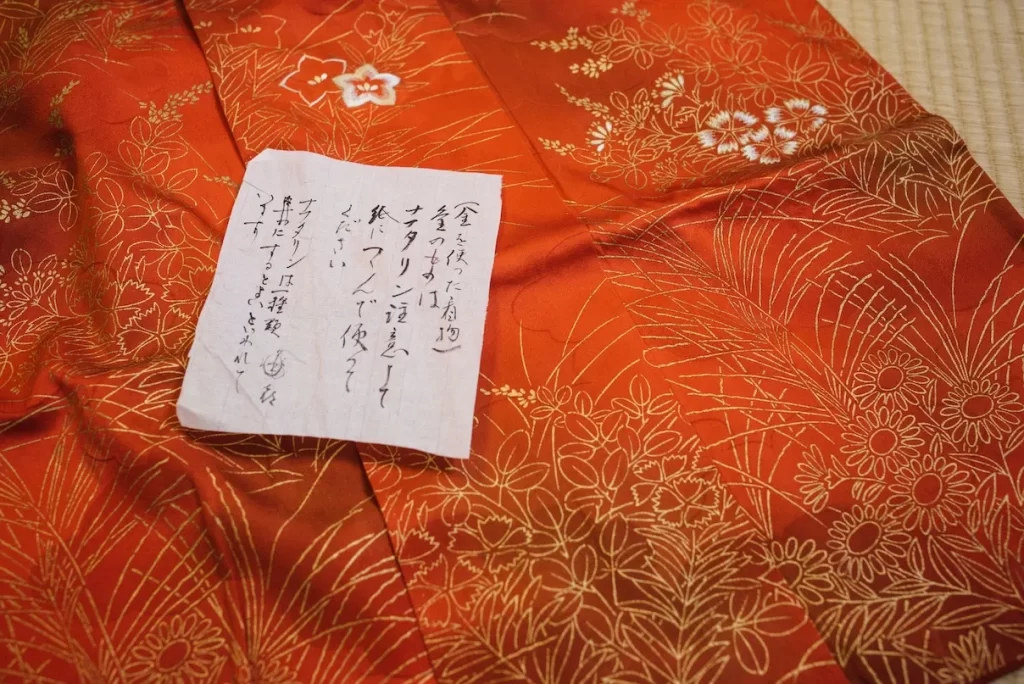 (金を使った着物)
金のものは
ナフタリン注意して
紙につゝんで使って
ください
ナフタリンは一種類
にするとよいといわれて
います